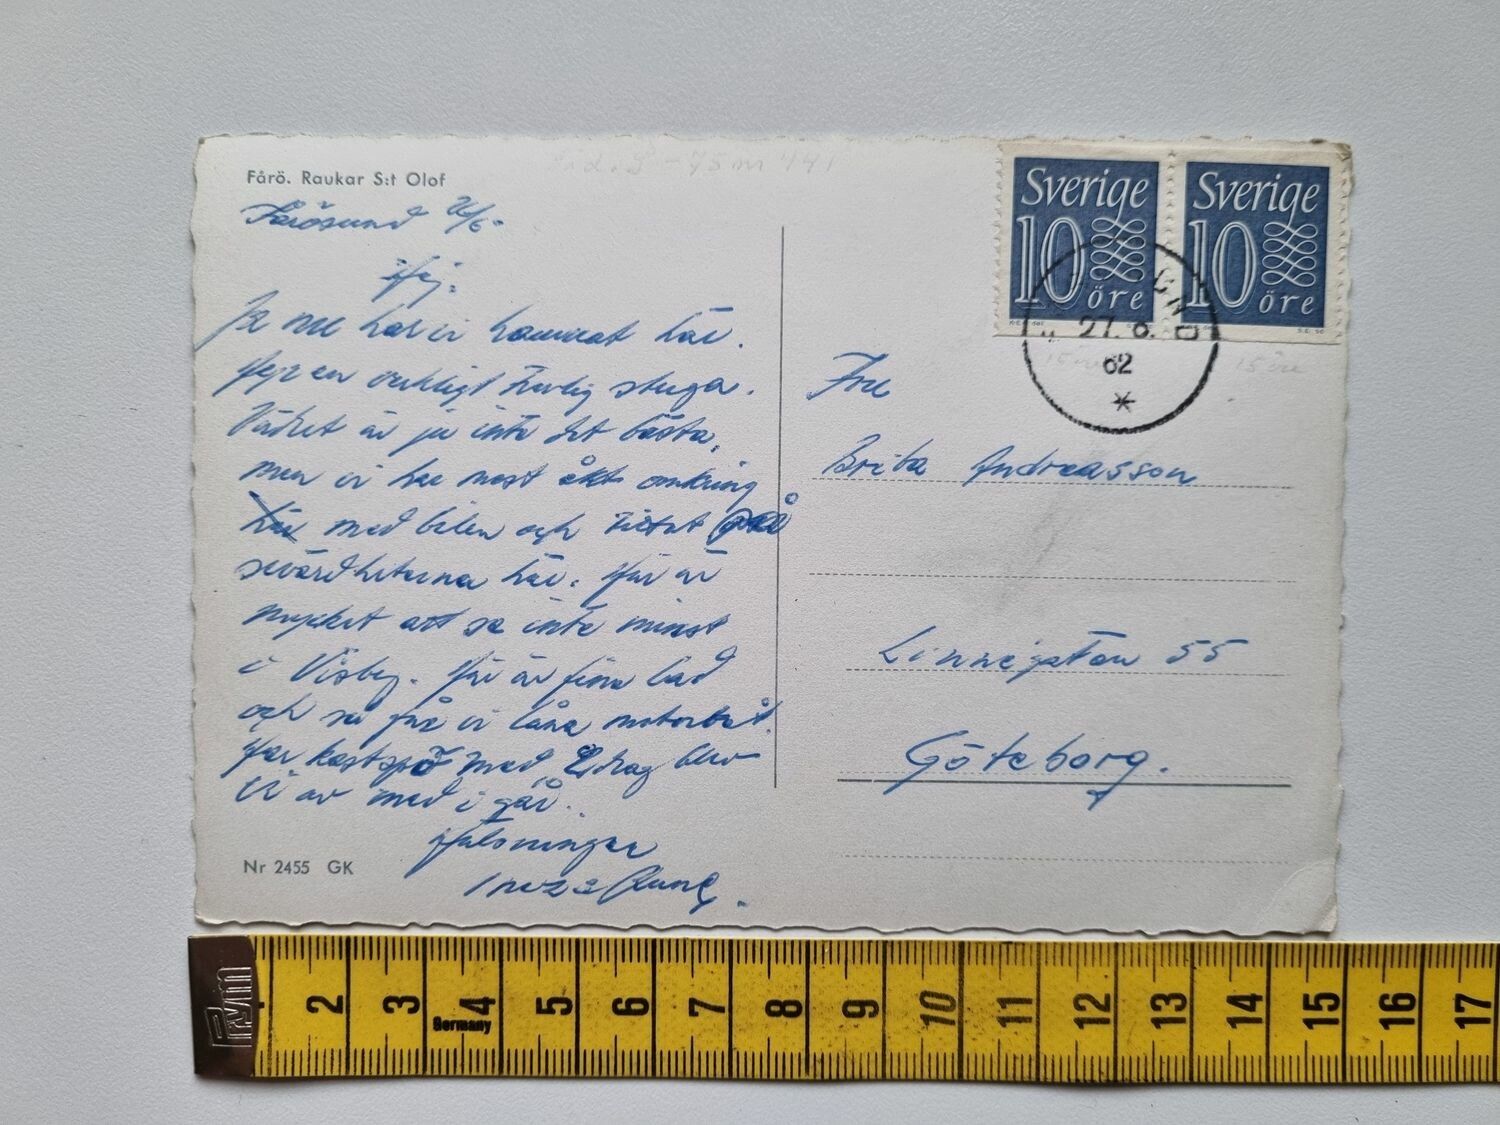 Fårö. Raukar S:t Olof
Fårösund 26/6-
Hej.
Ja nu har vi hamnat här.
Hyr en verkligt trevlig stuga.
Vädret är ju inte det bästa,
men vi har mest åkt omkring
här med bilen och tittat på
sevärdheterna här. Här är
mycket att se inte minst
i Visby. Här är fina bad
och så får vi låna motorbåt.
Har kastspö med, drag blev
vi av med i går.
Hälsningar
Nr 2455 GK
Sverige
10
öre
Sverige
10
öre
27. 6.
62
Fru
Brita Andreasson
Linnégatan 55
Göteborg.
2 3 4 5 6 7 8 9 10 11 12 13 14 15 16 17
Germany